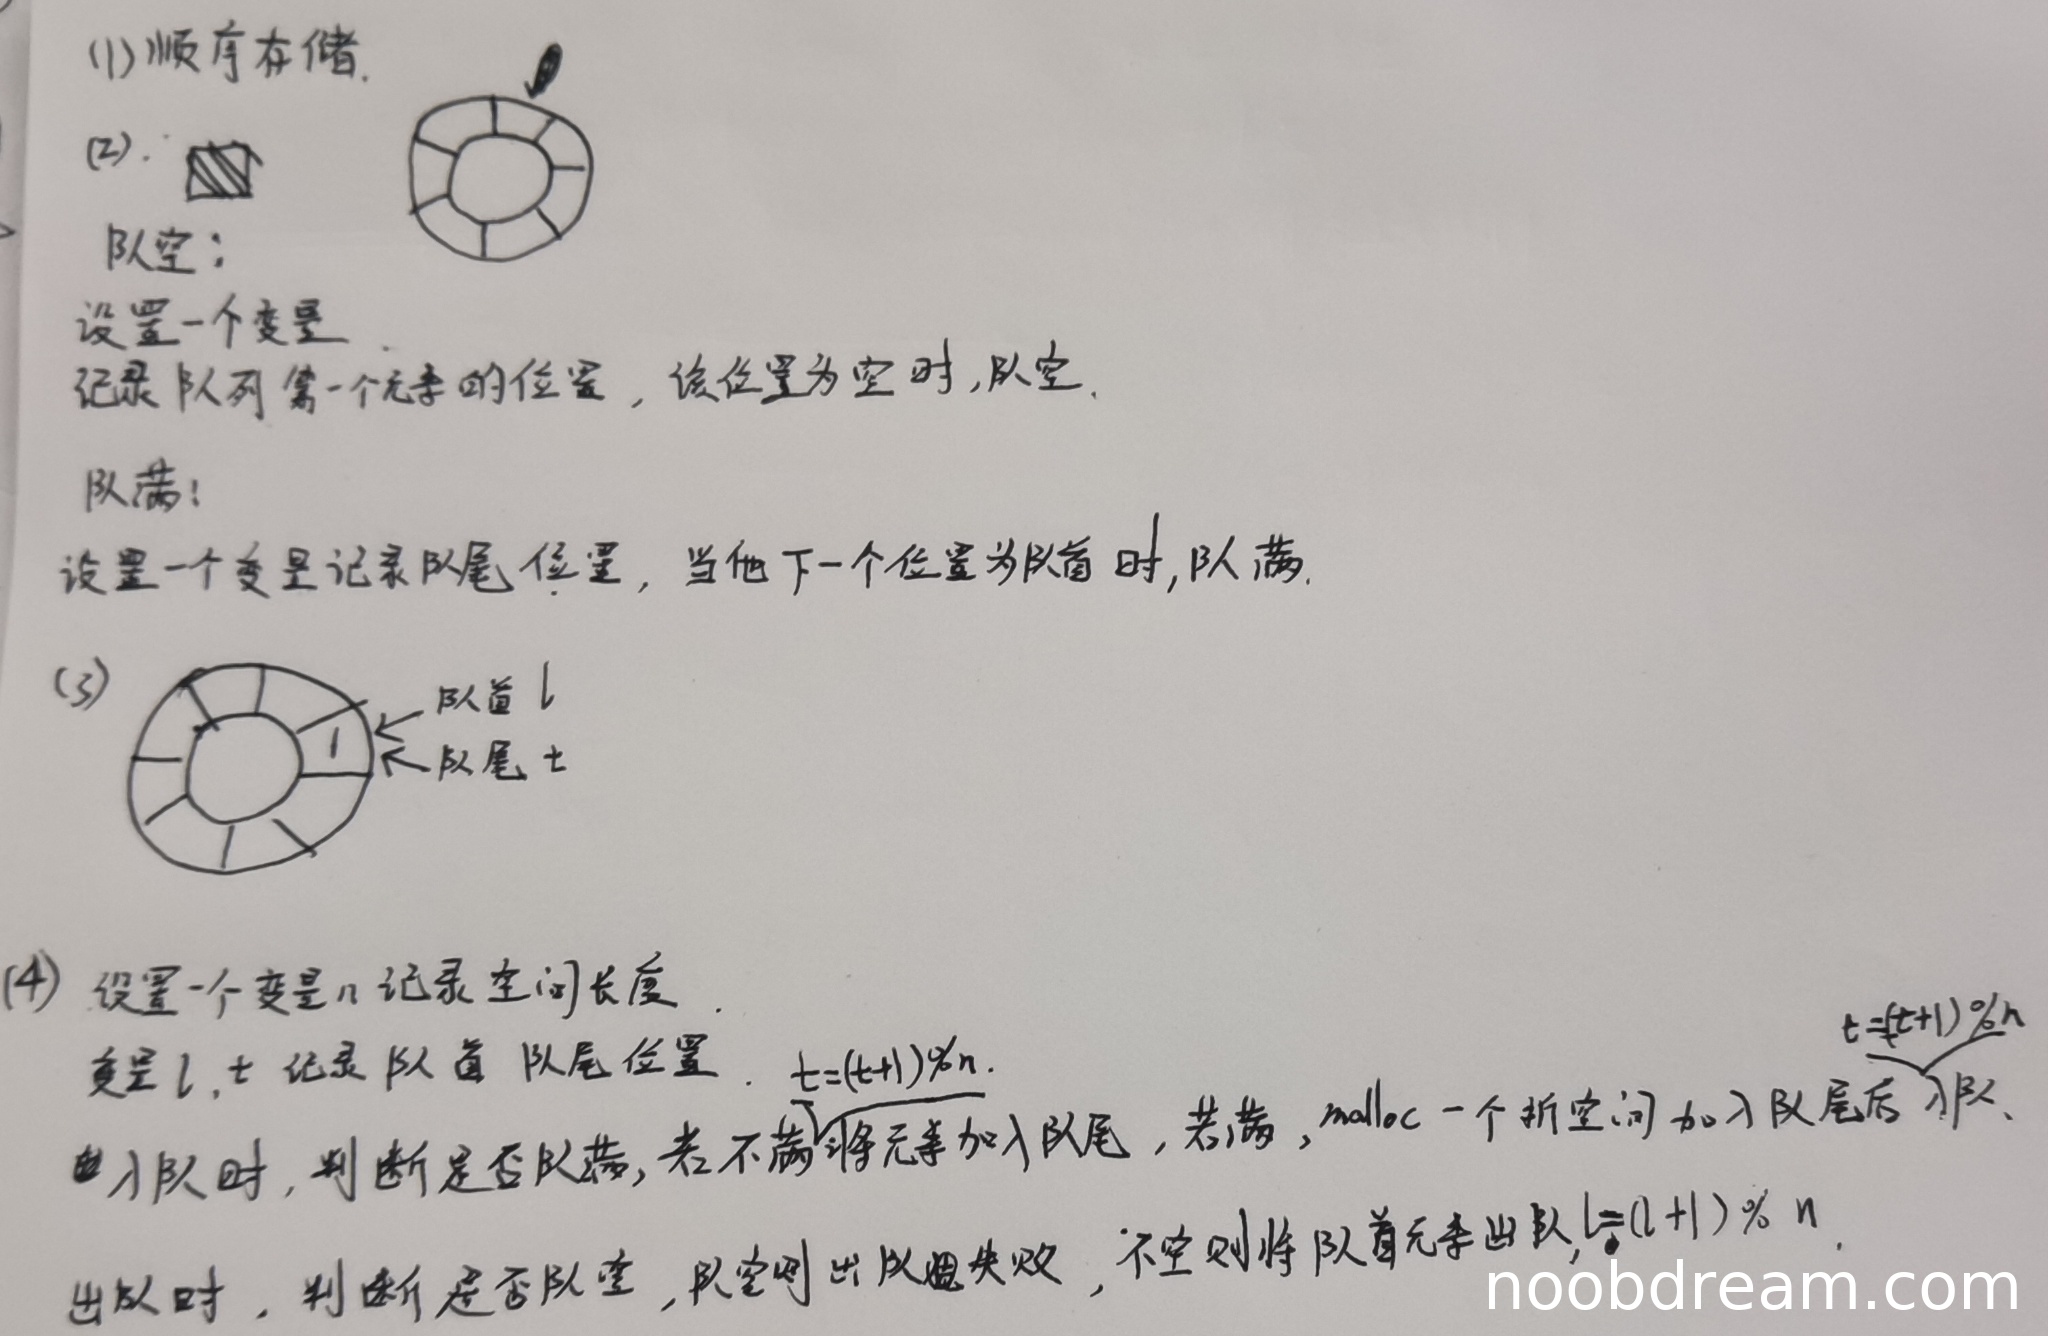 (1)顺序存储.
(2).
队空:
设置一个变量.
记录队列第一个元素的位置,该位置为空时,队空.
队满:
设置一个变量记录队尾位置,当他下一个位置为队首时,队满.
(3)
队首 l
1
队尾 t
(4) 设置一个变量n记录空间长度.
变量l,t记录队首队尾位置.
t=(t+1)%n.
t=(t+1)%n
入队时,判断是否队满,若不满将元素加入队尾,若满,malloc一个新空间加入队尾后入队、
出队时,判断是否队空,队空则出队失败,不空则将队首元素出队,l=(l+1)%n.
noobdream.com